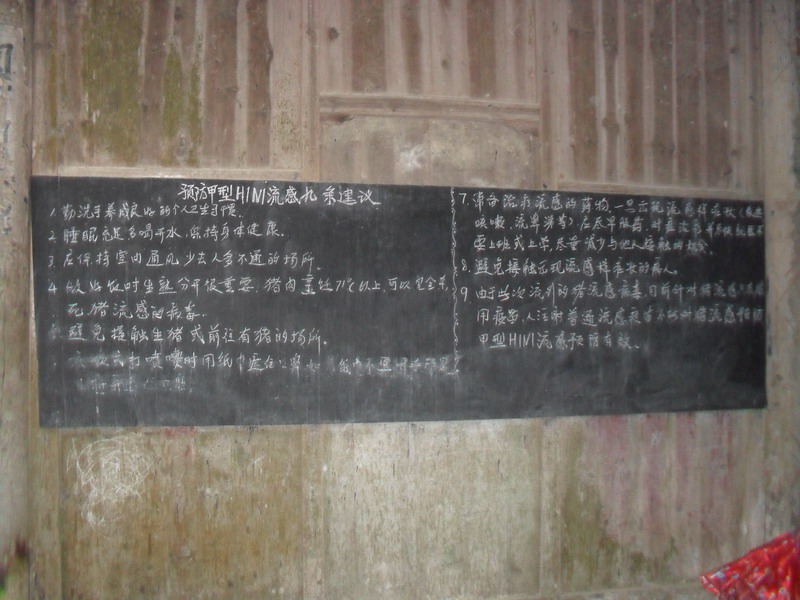 预防甲型H1N1流感九条建议
1 勤洗手养成良好的个人卫生习惯.
2. 睡眠充足多喝开水,保持身体健康.
3. 应保持室内通风少去人多不通的场所.
4 做此饭时生熟分开很重要,猪肉 71℃以上,可以完全杀
死猪流感的病毒.
避免接触生猪或前往有猪的场所.
或打喷嚏时用纸巾
7. 常备治疗流感的药物,一旦出现流感样症状(
咳嗽、流鼻涕等)应尽早服药,
要上班或上学,尽量减少与他人接触的机会.
8. 避免接触出现流感样症状的病人.
9 由于此次流行的猪流感病毒,目前针对猪流感
用疫苗,人注射普通流感疫苗不
甲型H1N1流感预防有效.